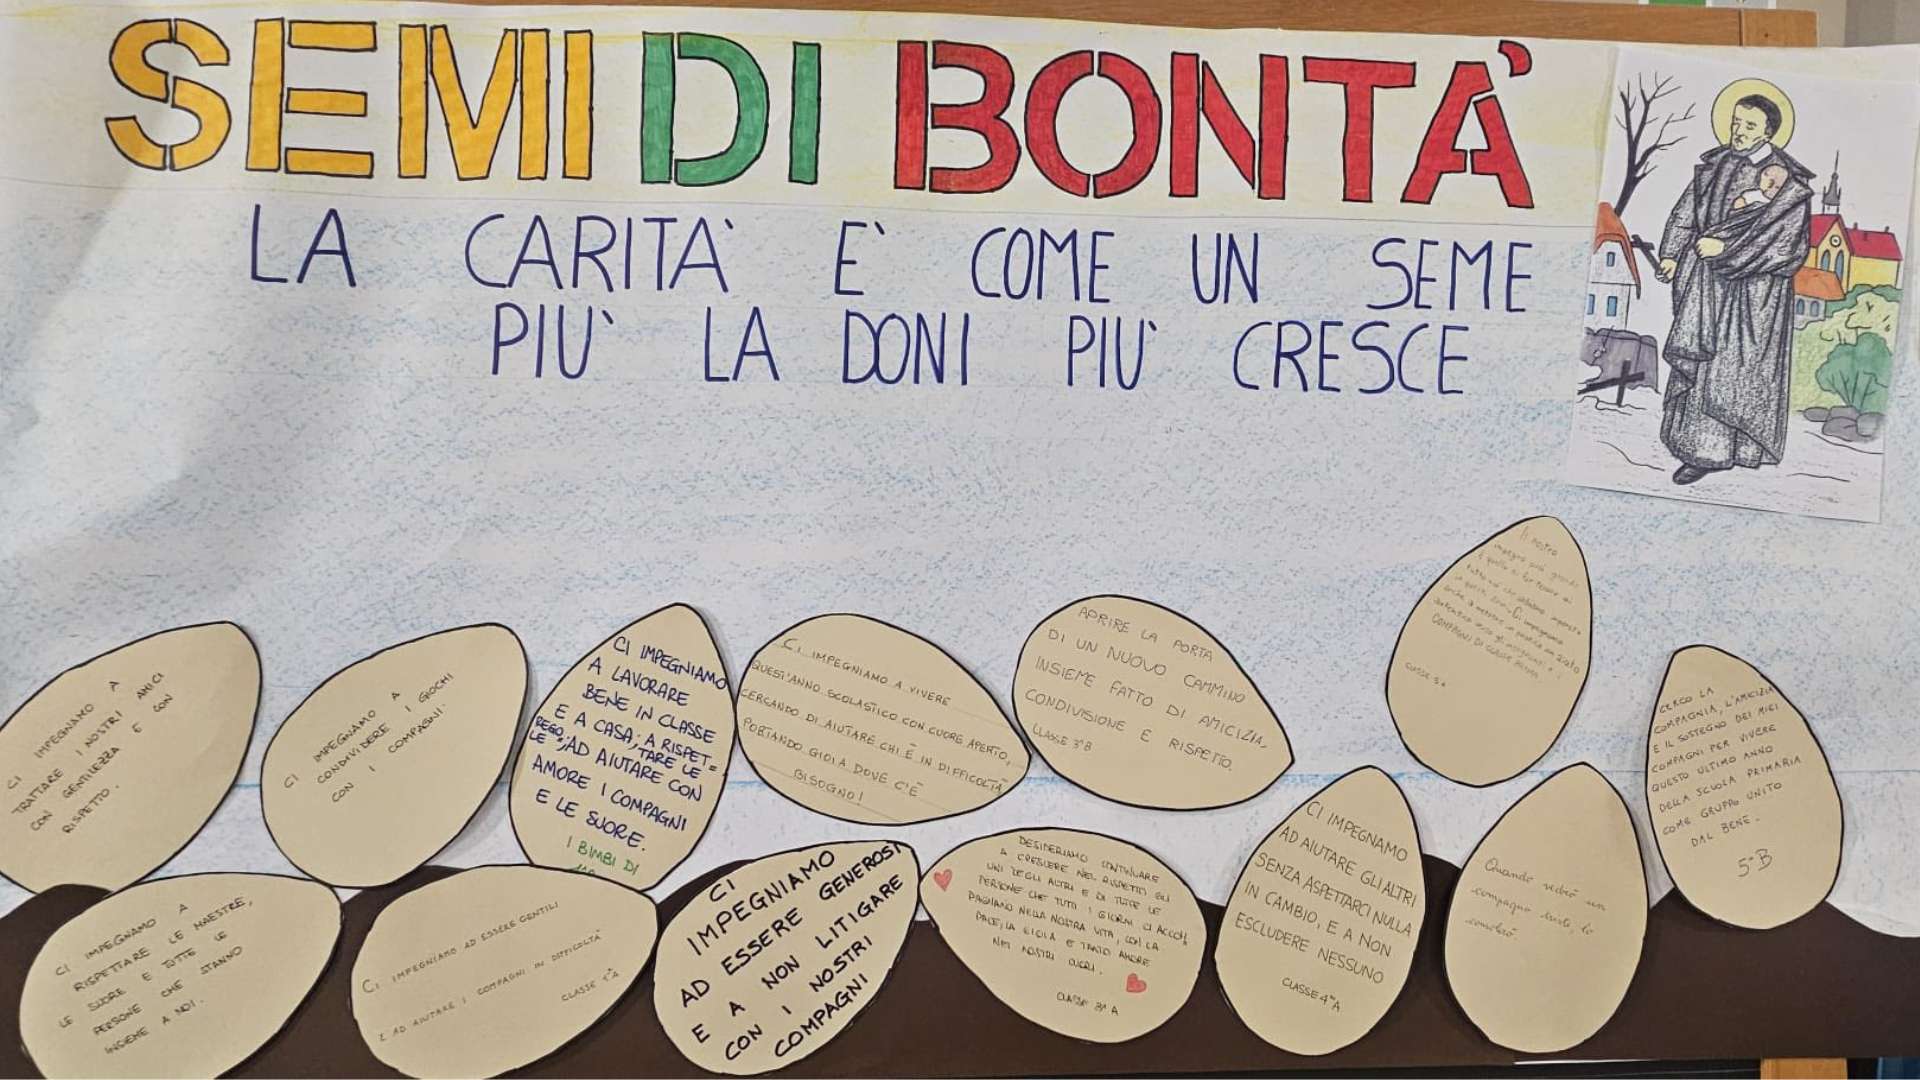 SEMI DI BONTÀ
LA CARITA' E' COME UN SEME
PIU' LA DONI PIU' CRESCE
CI IMPEGNAMO A
TRATTARE I NOSTRI AMICI
CON GENTILEZZA E CON
RISPETTO.
CI IMPEGNAMO A
CONDIVIDERE I GIOCHI
CON I COMPAGNI.
CI IMPEGNIAMO
A LAVORARE
BENE IN CLASSE
E A CASA; A RISPET=
TARE LE
REGO=
LE; AD AIUTARE CON
AMORE I COMPAGNI
E LE SUORE.
I BIMBI DI
CI IMPEGNIAMO A VIVERE
QUEST'ANNO SCOLASTICO CON CUORE APERTO,
CERCANDO DI AIUTARE CHI È IN DIFFICOLTÀ
PORTANDO GIOIA DOVE C'È
BISOGNO!
APRIRE LA PORTA
DI UN NUOVO CAMMINO
INSIEME FATTO DI AMICIZIA,
CONDIVISIONE E RISPETTO.
CLASSE 3ªB
Il nostro
impegno più grande
è quello di far tesoro di
tutto ciò che abbiamo imparato
in questi anni. Ci impegniamo
anche a mettere in pratica un aiuto
COMPAGNI DI CLASSE PRIMA
CLASSE 5A
CERCO LA
COMPAGNIA, L'AMICIZIA
E IL SOSTEGNO DEI MIEI
COMPAGNI PER VIVERE
QUESTO ULTIMO ANNO
DELLA SCUOLA PRIMARIA
COME GRUPPO UNITO
DAL BENE.
5ªB
CI IMPEGNAMO A
RISPETTARE LE MAESTRE,
LE SUORE E TUTTE LE
PERSONE CHE STANNO
INSIEME A NOI.
CI IMPEGNIAMO AD ESSERE GENTILI
E AD AIUTARE I COMPAGNI IN DIFFICOLTA'
CLASSE 1ªA
CI
IMPEGNIAMO
AD ESSERE GENEROSI
E A NON LITIGARE
CON I NOSTRI
COMPAGNI
DESIDERIAMO CONTINUARE
A CRESCERE NEL RISPETTO GLI
UNI DEGLI ALTRI E DI TUTTE LE
PERSONE CHE TUTTI I GIORNI CI ACCOM
PAGNANO NELLA NOSTRA VITA, CON LA
PACE, LA GIOIA E TANTO AMORE
NEI NOSTRI CUORI.
CLASSE 3ª A
CI IMPEGNAMO
AD AIUTARE GLI ALTRI
SENZA ASPETTARCI NULLA
IN CAMBIO, E A NON
ESCLUDERE NESSUNO
CLASSE 4ªA
Quando vedrò un
compagno triste, lo
consolerò.